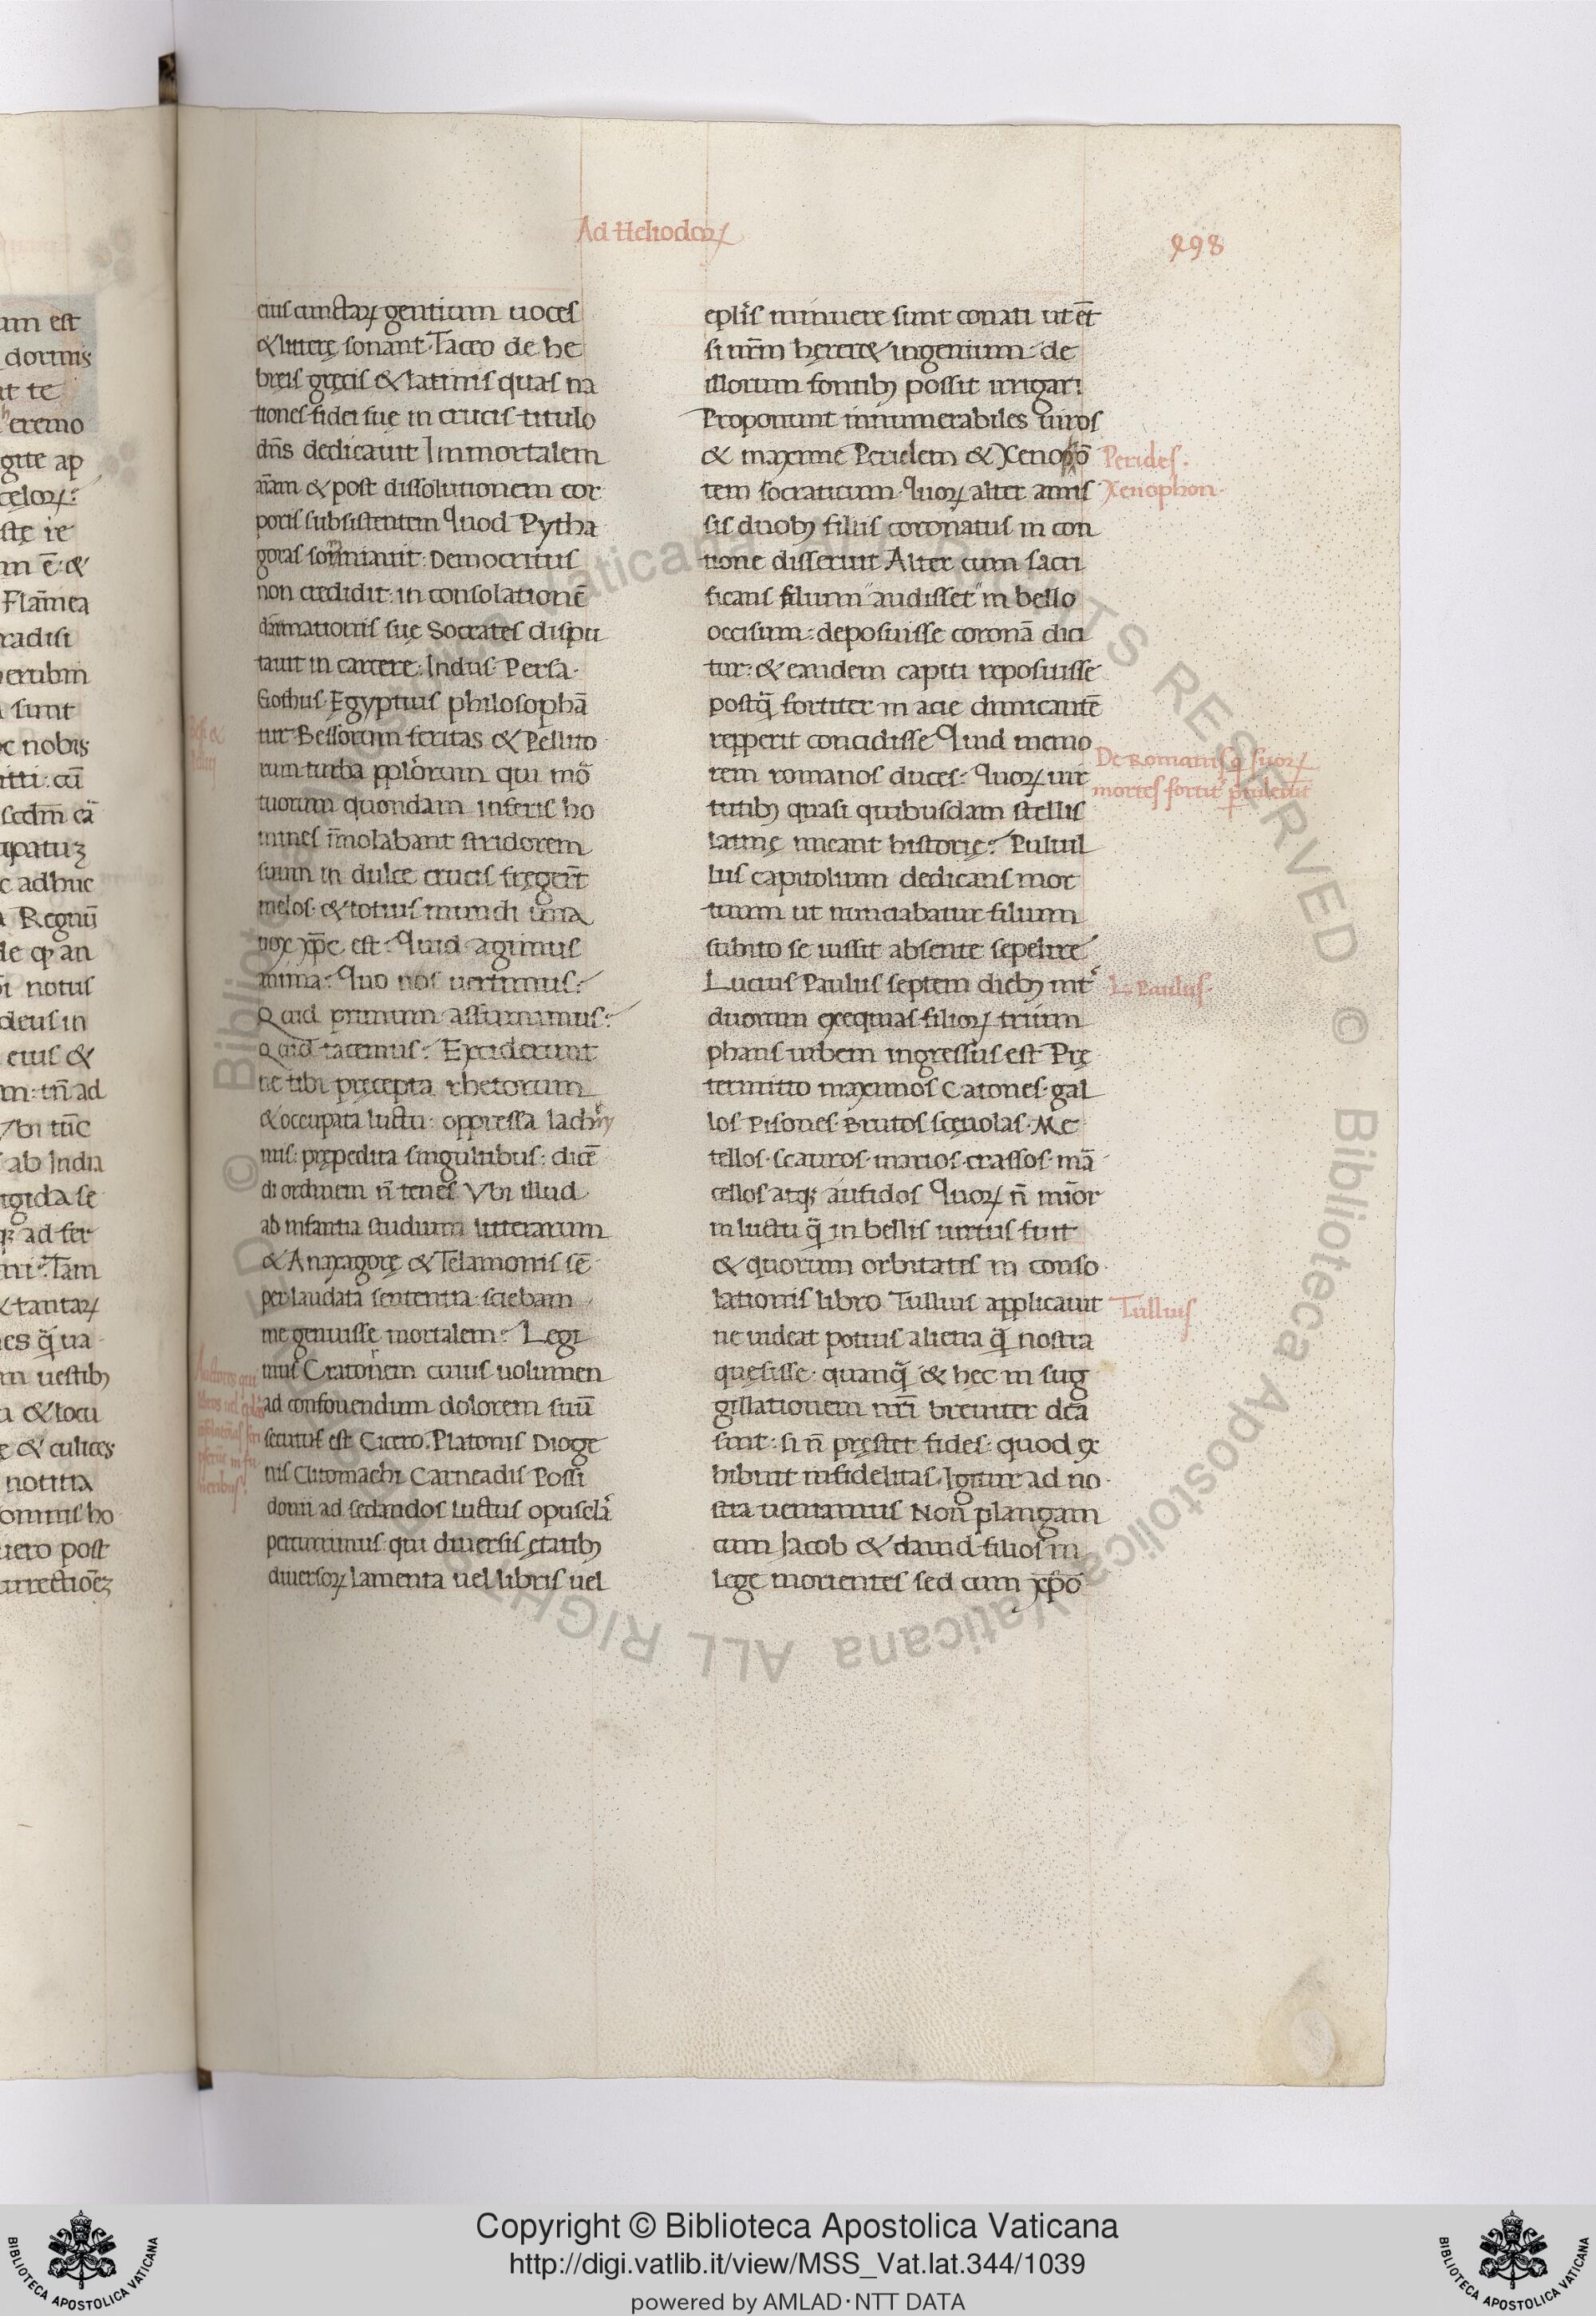 Ad Heliodoꝝ
498
eius cunctaꝝ gentium uoces
& litterę sonant. Taceo de he
breis gręcis & latinis quas na
tiones fidei suę in crucis titulo
dn̄s dedicauit Immortalem
aīam & post dissolutionem cor
poris subsistentem quod Pytha
goras somniauit: Democritus
non credidit: in consolationē
dānationis suę Socrates dispu
tauit in carcere: Indus Persa.
Gothus. Egyptius philosophā
tur. Bessorum feritas & Pellito
rum turba pplorum qui mor
tuorum quondam inferis ho
mines īmolabant stridorem
suum in dulce crucis fręgert̄
melos. & totius mundi una
uox xp̄c est. Quid agimus
anima? Quo nos uertimus?
Quid primum assumimus?
Quid tacemus? Exciderunt
ne tibi pręcepta rhetorum
& occupata luctu: oppressa lachry
mis: prępedita singultibus: dicē
di ordinem n̄ tenes Vbi illud
ab infantia studium litterarum
& Anaxagorę & Telamonis sē
per laudata sententia: sciebam
me genuisse mortalem? Legi
mus Crantorem cuius uolumen
ad confouendum dolorem suū
secutus est Cicero. Platonis Dioge
nis Clitomachi Carneadis Possi
donii ad sedandos luctus opuscla
percurrimus: qui diuersis ętatibꝫ
diuersoꝝ lamenta uel libris uel
eplis minuere sunt conati ut et̄
si nr̄m hęreret ingenium: de
illorum fontibꝫ possit irrigari
Proponunt innumerabiles uiros
& maxime Periclem & Xenophō
tem socraticum. Quoꝝ alter amis
sis duobꝫ filiis coronatus in con
tione disseruit Alter cum sacri
ficans filium audisset in bello
occisum: deposuisse coronā dici
tur: & eandem capiti reposuisse
postq̄ fortiter in acie dimicantē
repperit concidisse. Quid memo
rem romanos duces: Quoꝝ uir
tutibꝫ quasi quibusdam stellis
latinę micant historię? Puluil
lus capitolium dedicans mor
tuum ut nunciabatur filium
subito se iussit absente sepelire
Lucius Paulus septem diebꝫ inter
duorum exequias filioꝝ trium
phans urbem ingressus est Prę
termitto maximos Catones. gal
los Pisones. Brutos scęuolas. Me
tellos. scauros. marios. crassos. mar
cellos atqꝫ aufidos Quoꝝ n̄ minor
in luctu q̄ in bellis uirtus fuit
& quorum orbitates in conso
lationis libro Tullius applicauit
ne uideat potius aliena q̄ nostra
quęsisse. quanq̄ & hęc in sug
gillationem nr̄i breuiter dc̄a
sint: si n̄ pręstet fides: quod ex
hibuit infidelitas. Igitur ad no
stra ueniamus Non plangam
cum Jacob & dauid filios in
lege morientes sed cum xp̄o
Perides.
Xenophon.
De Romanis q̄ suoꝝ
mortes fortit̉ ꝑtulerūt
L. Paulus.
Tullius
Copyright © Biblioteca Apostolica Vaticana
http://digi.vatlib.it/view/MSS_Vat.lat.344/1039
powered by AMLAD·NTT DATA